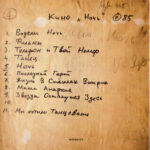 Кино "Ночь" 85
1. Видели Ночь
2. Фильмы
3. Телефон и Твой Номер
4. Танец
5. Ночь
6. Последний Герой
7. Жизнь в Стёклах Витрин
8. Мама Анархия
9. Звезды Останутся Здесь
11. Мы хотим Танцевать